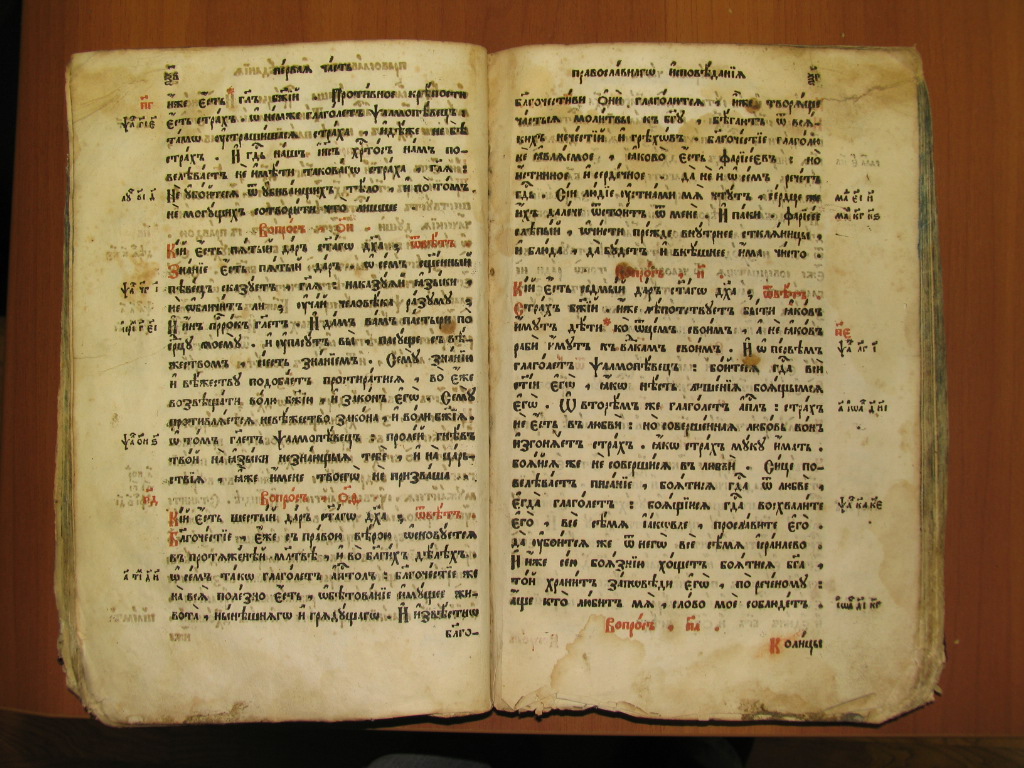 первая часть
иже есть гл҃ъ бж҃їй Противное крѣпости
есть страхъ. ѡ немже глаголетъ ѱаломпѣвецъ:
тамѡ оустрашишася страха, идѣже не бѣ
страхъ. И гд҃ь нашъ і҆и҃съ хр҃тосъ намъ по-
велѣваетъ не имѣти таковагѡ страха, гл҃я:
Не оубойтеся ѿ оубивающихъ тѣло, и потомъ
не могущихъ сотворити что лишше.
Вопросъ. о҃и
Кїй есть пятый даръ ст҃агѡ дх҃а; ѿвѣтъ.
Знанїе есть пятый даръ. ѡ семъ сщ҃енный
пѣвецъ сказуетъ, гл҃я: наказуяй языки,
не ѡбличитъ ли; оучай человѣка разуму;
И инъ пр҃рокъ гл҃етъ. И дамъ вамъ пастыри по
ср҃цу моему. и оупасутъ вы, пасуще съ вѣ-
жествомъ, си есть знанїемъ. Сему знанїю
и вѣжеству подобаетъ простиратися, во еже
возвѣщати волю бж҃їю, и законъ егѡ. Сему
противляется невѣжество закона, и воли бж҃їя.
ѡ томъ гл҃етъ ѱаломпѣвецъ: пролей гнѣвъ
твой на языки незнающыя тебе, и на цар-
ствїя, яже имене твоегѡ не призваша.
Вопросъ о҃ѳ.
Кїй есть шестый даръ ст҃агѡ дх҃а; ѿвѣтъ.
Благочестїе, еже съ правою вѣрою ѡсновуется
въ протяженѣй мл҃твѣ, и во благихъ дѣлѣхъ.
ѡ семъ такѡ глаголетъ ап҃толъ: благочестїе же
на вся полезно есть, ѡбѣтованїе имущее жи-
вота, нынѣшнягѡ и грядущагѡ. И извѣстнѡ
благо-
православнагѡ исповѣданїя
благочестиви ѻнѝ глаголются, иже творяще
частыя молитвы къ бг҃у, бѣгаютъ ѿ вся-
кихъ нечестїй и грѣхѡвъ. благочестїе глаголю
не ꙗвляемое, ꙗково есть фарїсеевъ: но
истинное и сердечное. да не и ѡ семъ речетъ
гд҃ь. Сїи людїе оустнами мя чтутъ, сердце же
ихъ далече ѿстоитъ ѿ мене. И паки, фарїсее
слѣпый, ѡчисти прежде внутрнее стклянницы,
и блюда, да будетъ и внѣшнее има чисто.
Вопросъ. п҃
Кїй есть седмый даръ ст҃агѡ дх҃а; ѿвѣтъ.
Страхъ бж҃їй. иже лѣпотствуетъ быти ꙗковъ
имутъ дѣти ко ѿцемъ своимъ, а не ꙗковъ
раби имутъ къ вл҃камъ своимъ. И ѡ первѣмъ
глаголетъ ѱаломпѣвецъ: бойтеся гд҃а вси
ст҃їи егѡ, ꙗкѡ нѣсть лишенїя боящымся
егѡ. Ѿ вторѣмъ же глаголетъ ап҃лъ: страхъ
не есть въ любви: но совершенная любовь вонъ
изгоняетъ страхъ. ꙗкѡ страхъ муку имать.
бояйся же не совершися въ любви. Сице по-
велѣваетъ писанїе, боятися гд҃а ѿ любве,
егда глаголетъ: боящїися гд҃а восхвалите
его, все сѣмя їаковле, прославите его.
да оубоится же ѿ негѡ все сѣмя ісраилево.
И иже сею боязнїю хощетъ боятися бг҃а,
той хранитъ заповѣди егѡ, по реченому:
аще кто любитъ мя, слово мое соблюдетъ.
Вопросъ. п҃а.
Колицы